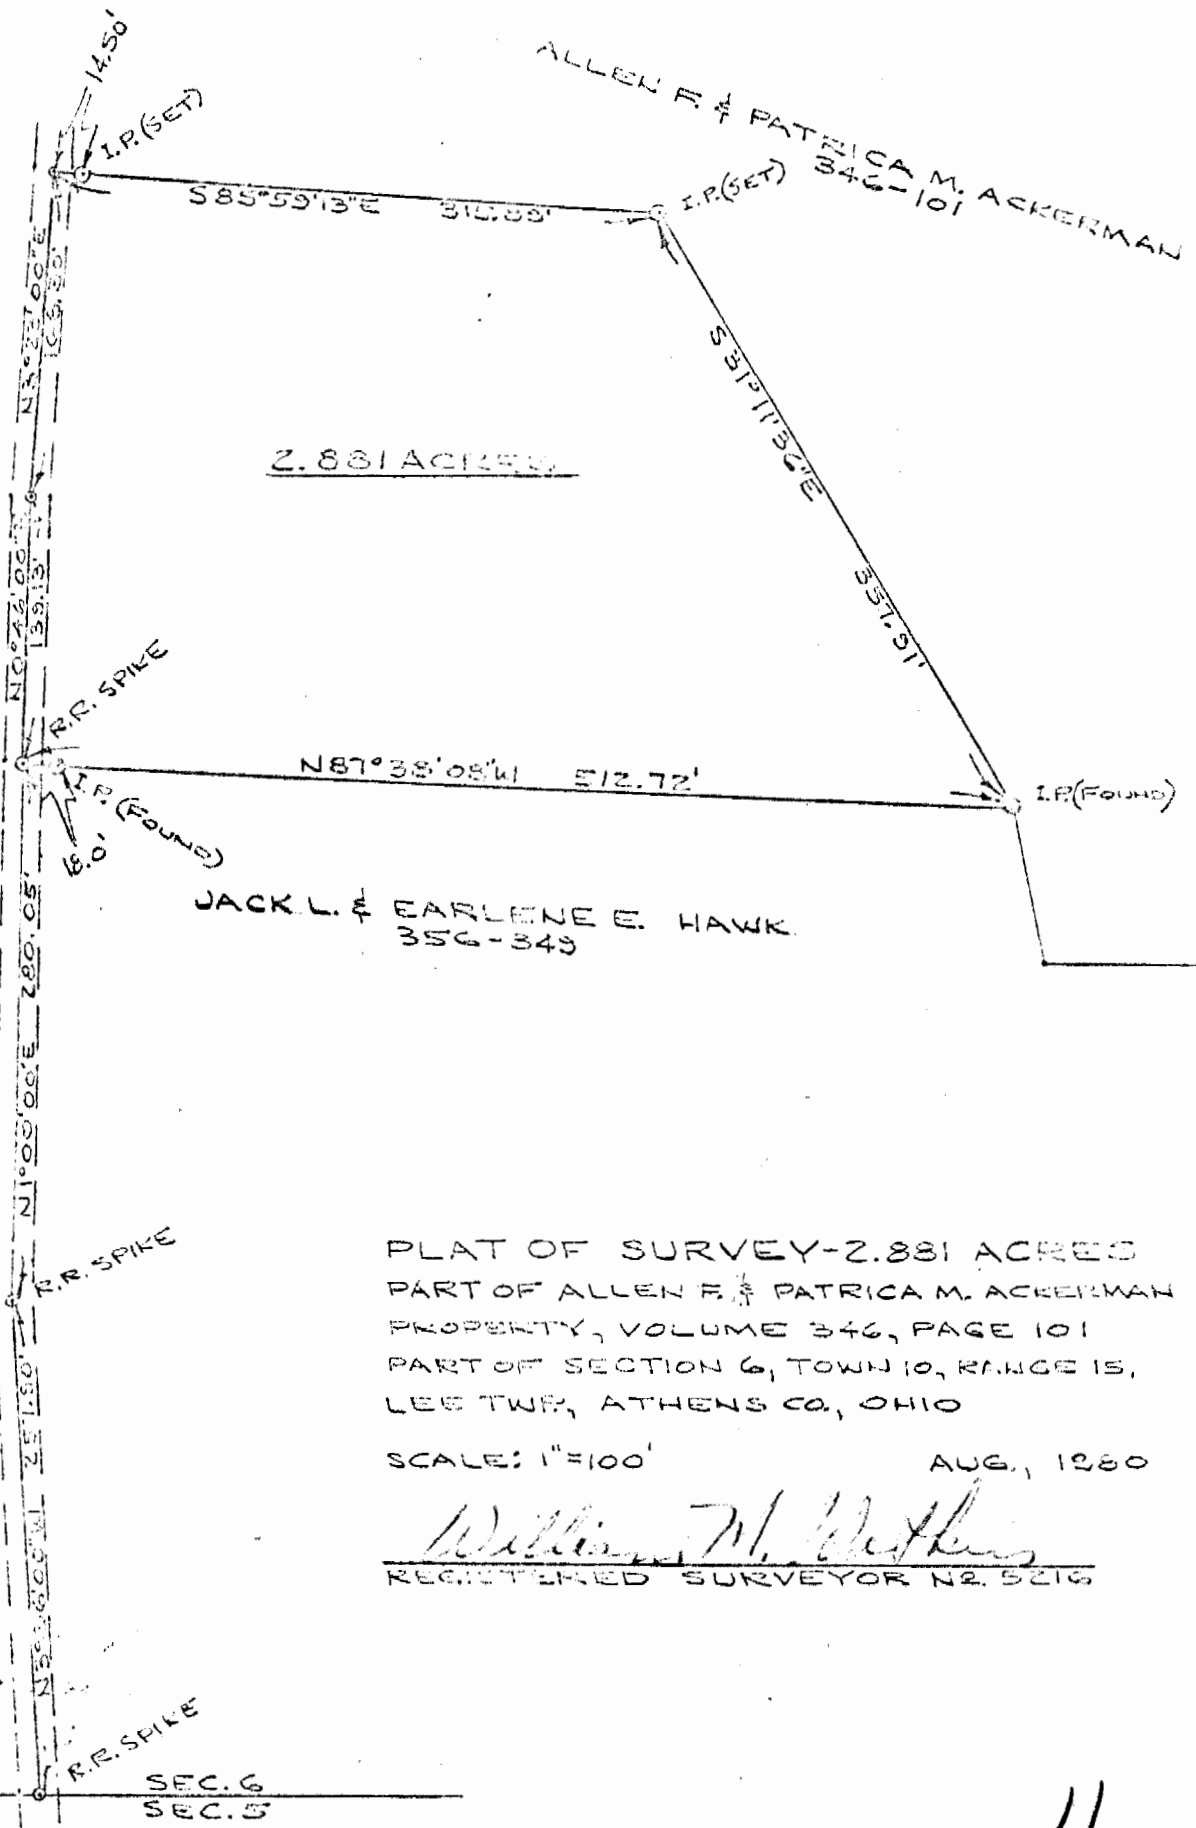 14.50'
I.P.(SET)
ALLEN F. & PATRICA M. ACKERMAN
346-101
S85°59'13"E
I.P.(SET)
N3°23'00"E
S31°11'36"E
357.91'
2.881 ACRES
N0°46'00"E
139.13'
R.R. SPIKE
N87°38'08"W 512.72'
I.P.(FOUND)
I.P.(FOUND)
18.0'
JACK L. & EARLENE E. HAWK
356-349
N1°00'00"E 280.05'
R.R. SPIKE
PLAT OF SURVEY-2.881 ACRES
PART OF ALLEN F. & PATRICA M. ACKERMAN
PROPERTY, VOLUME 346, PAGE 101
PART OF SECTION 6, TOWN 10, RANGE 15,
LEE TWP., ATHENS CO., OHIO
SCALE: 1"=100' AUG., 1980
William M. Wetkins
REGISTERED SURVEYOR No. 5216
R.R. SPIKE
SEC. 6
SEC. 5
11